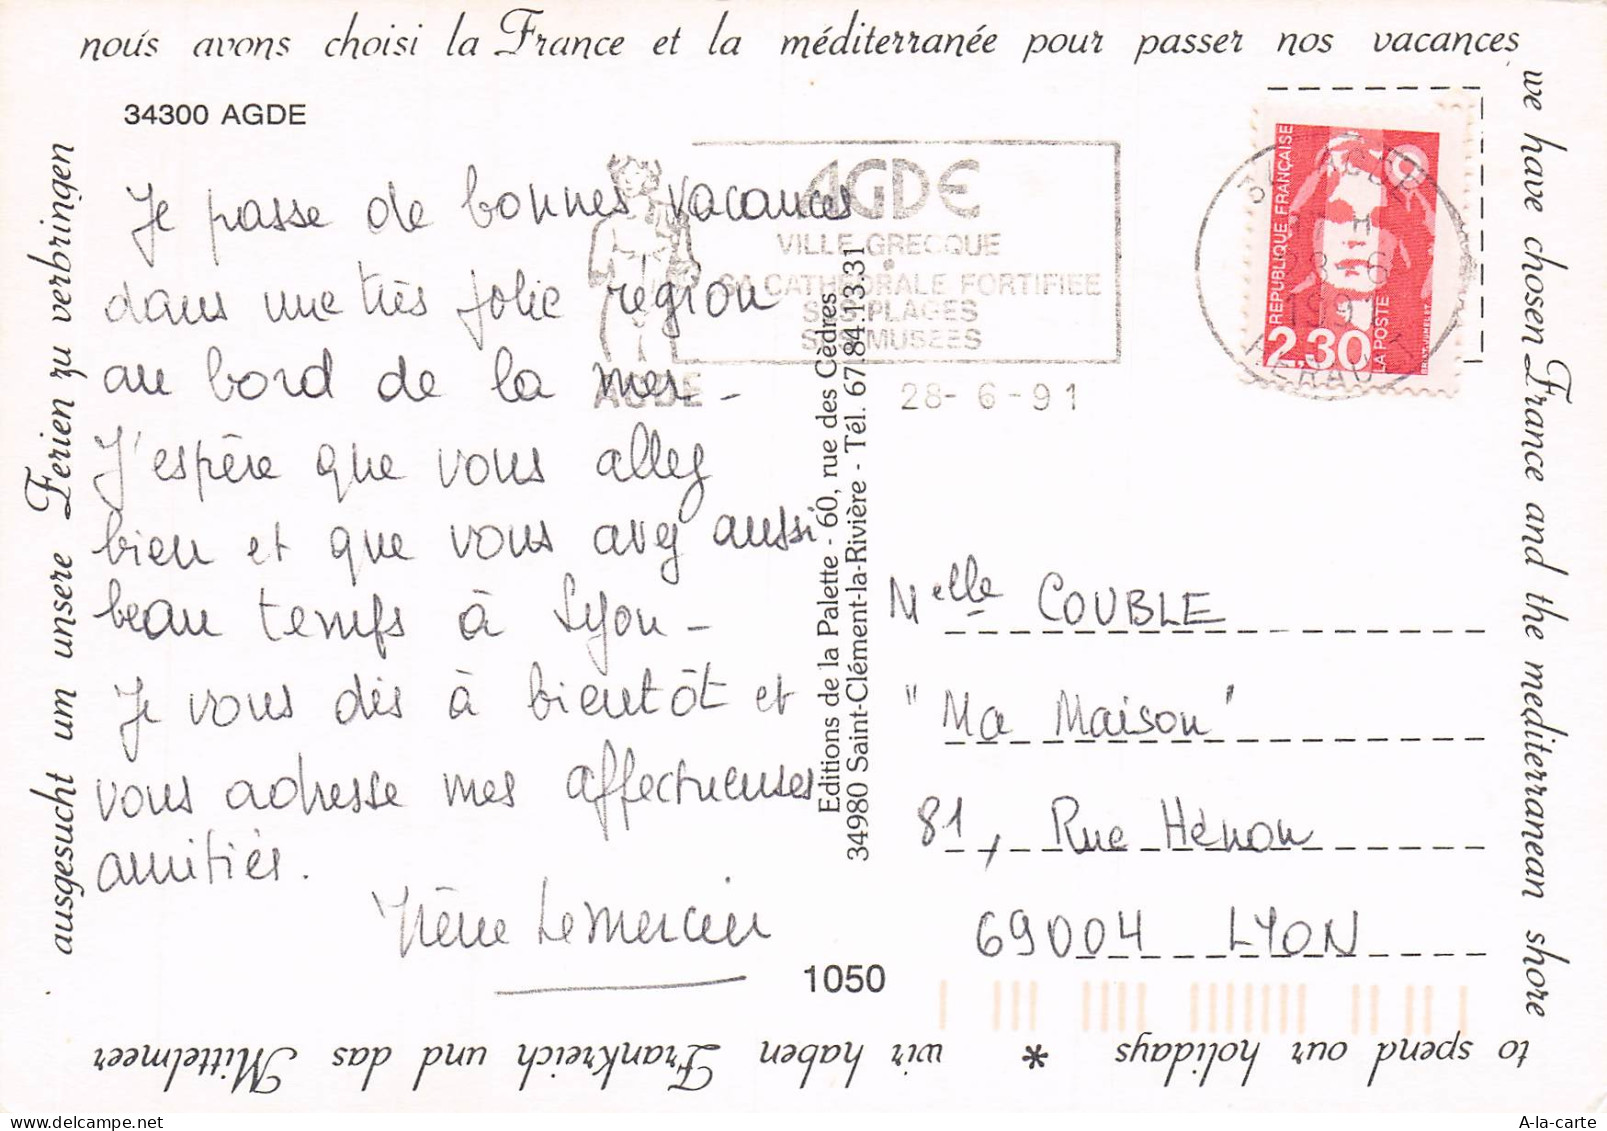 nous avons choisi la France et la méditerranée pour passer nos vacances
we have chosen France and the mediterranean shore
to spend our holidays * wir haben Frankreich und das Mittelmeer
ausgesucht um unsere Ferien zu verbringen
34300 AGDE
Je passe de bonnes vacances
dans une très jolie région
au bord de la mer -
J'espère que vous allez
bien et que vous avez aussi
beau temps à Lyon -
Je vous dis à bientôt et
vous adresse mes affectueuses
amitiés.
Irène Lemercier
AGDE
VILLE GRECQUE
SA CATHEDRALE FORTIFIEE
SES PLAGES
SES MUSEES
AGDE
28-6-91
HERAULT
REPUBLIQUE FRANÇAISE
2,30
LA POSTE
Editions de la Palette - 60, rue des Cèdres
34980 Saint-Clément-la-Rivière - Tél. 67.84.13.31
Melle COUBLE
"Ma Maison"
81, Rue Hénon
69004 LYON
1050
A-la-carte